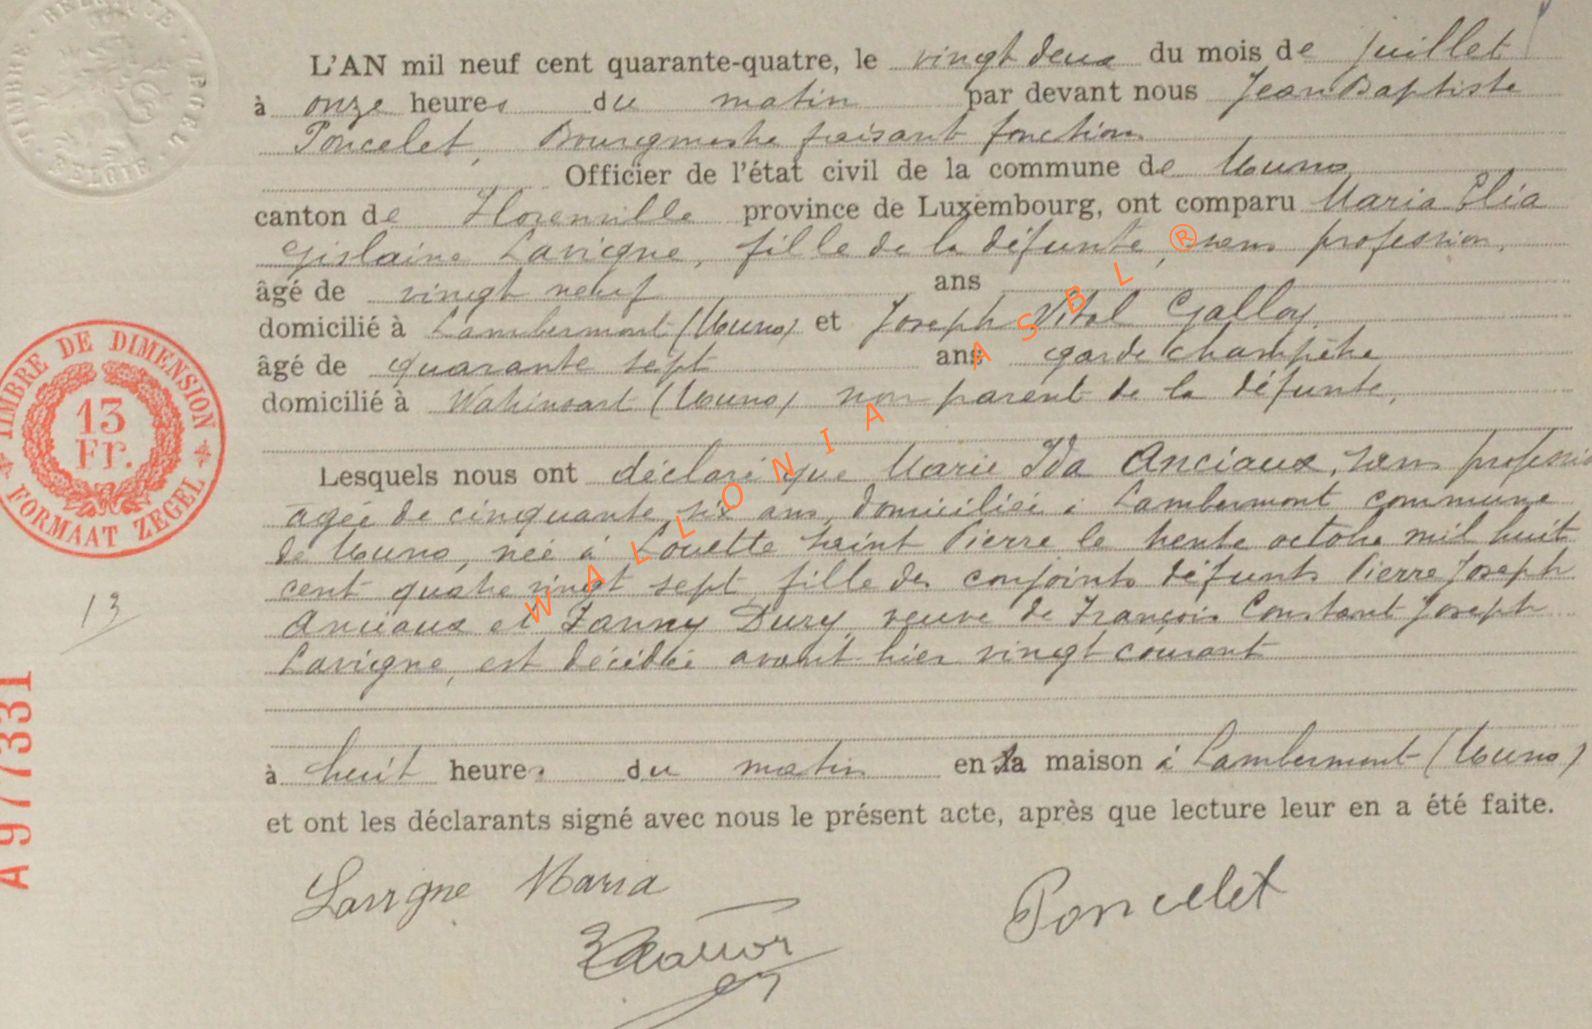 BELGIQUE · ZEGEL · BELGIE · TIMBRE
L'AN mil neuf cent quarante-quatre, le vingt deux du mois de juillet
à onze heures du matin par devant nous Jean Baptiste
Poncelet, Bourgmestre faisant fonction
Officier de l'état civil de la commune de Muno
canton de Florenville province de Luxembourg, ont comparu Maria Elia
Gislaine Lavigne, fille de la défunte, sans profession,
âgé de vingt neuf ans
domicilié à Lambermont (Muno) et Joseph Vital Galloy,
âgé de quarante sept ans garde champêtre
domicilié à Watrinsart (Muno) non parent de la défunte,
Lesquels nous ont déclaré que Marie Ida Anciaux, sans profession
agée de cinquante six ans, domiciliée à Lambermont commune
de Muno, née à Louette Saint Pierre le trente octobre mil huit
cent quatre vingt sept, fille des conjoints défunts Pierre Joseph
Anciaux et Fanny Dury, veuve de François Constant Joseph
Lavigne, est décédée avant hier vingt courant
à huit heures du matin en sa maison à Lambermont (Muno)
et ont les déclarants signé avec nous le présent acte, après que lecture leur en a été faite.
Lavigne Maria
Poncelet
TIMBRE DE DIMENSION
13
Fr.
FORMAAT ZEGEL
13
A977331
WALLONIA ASBL ®